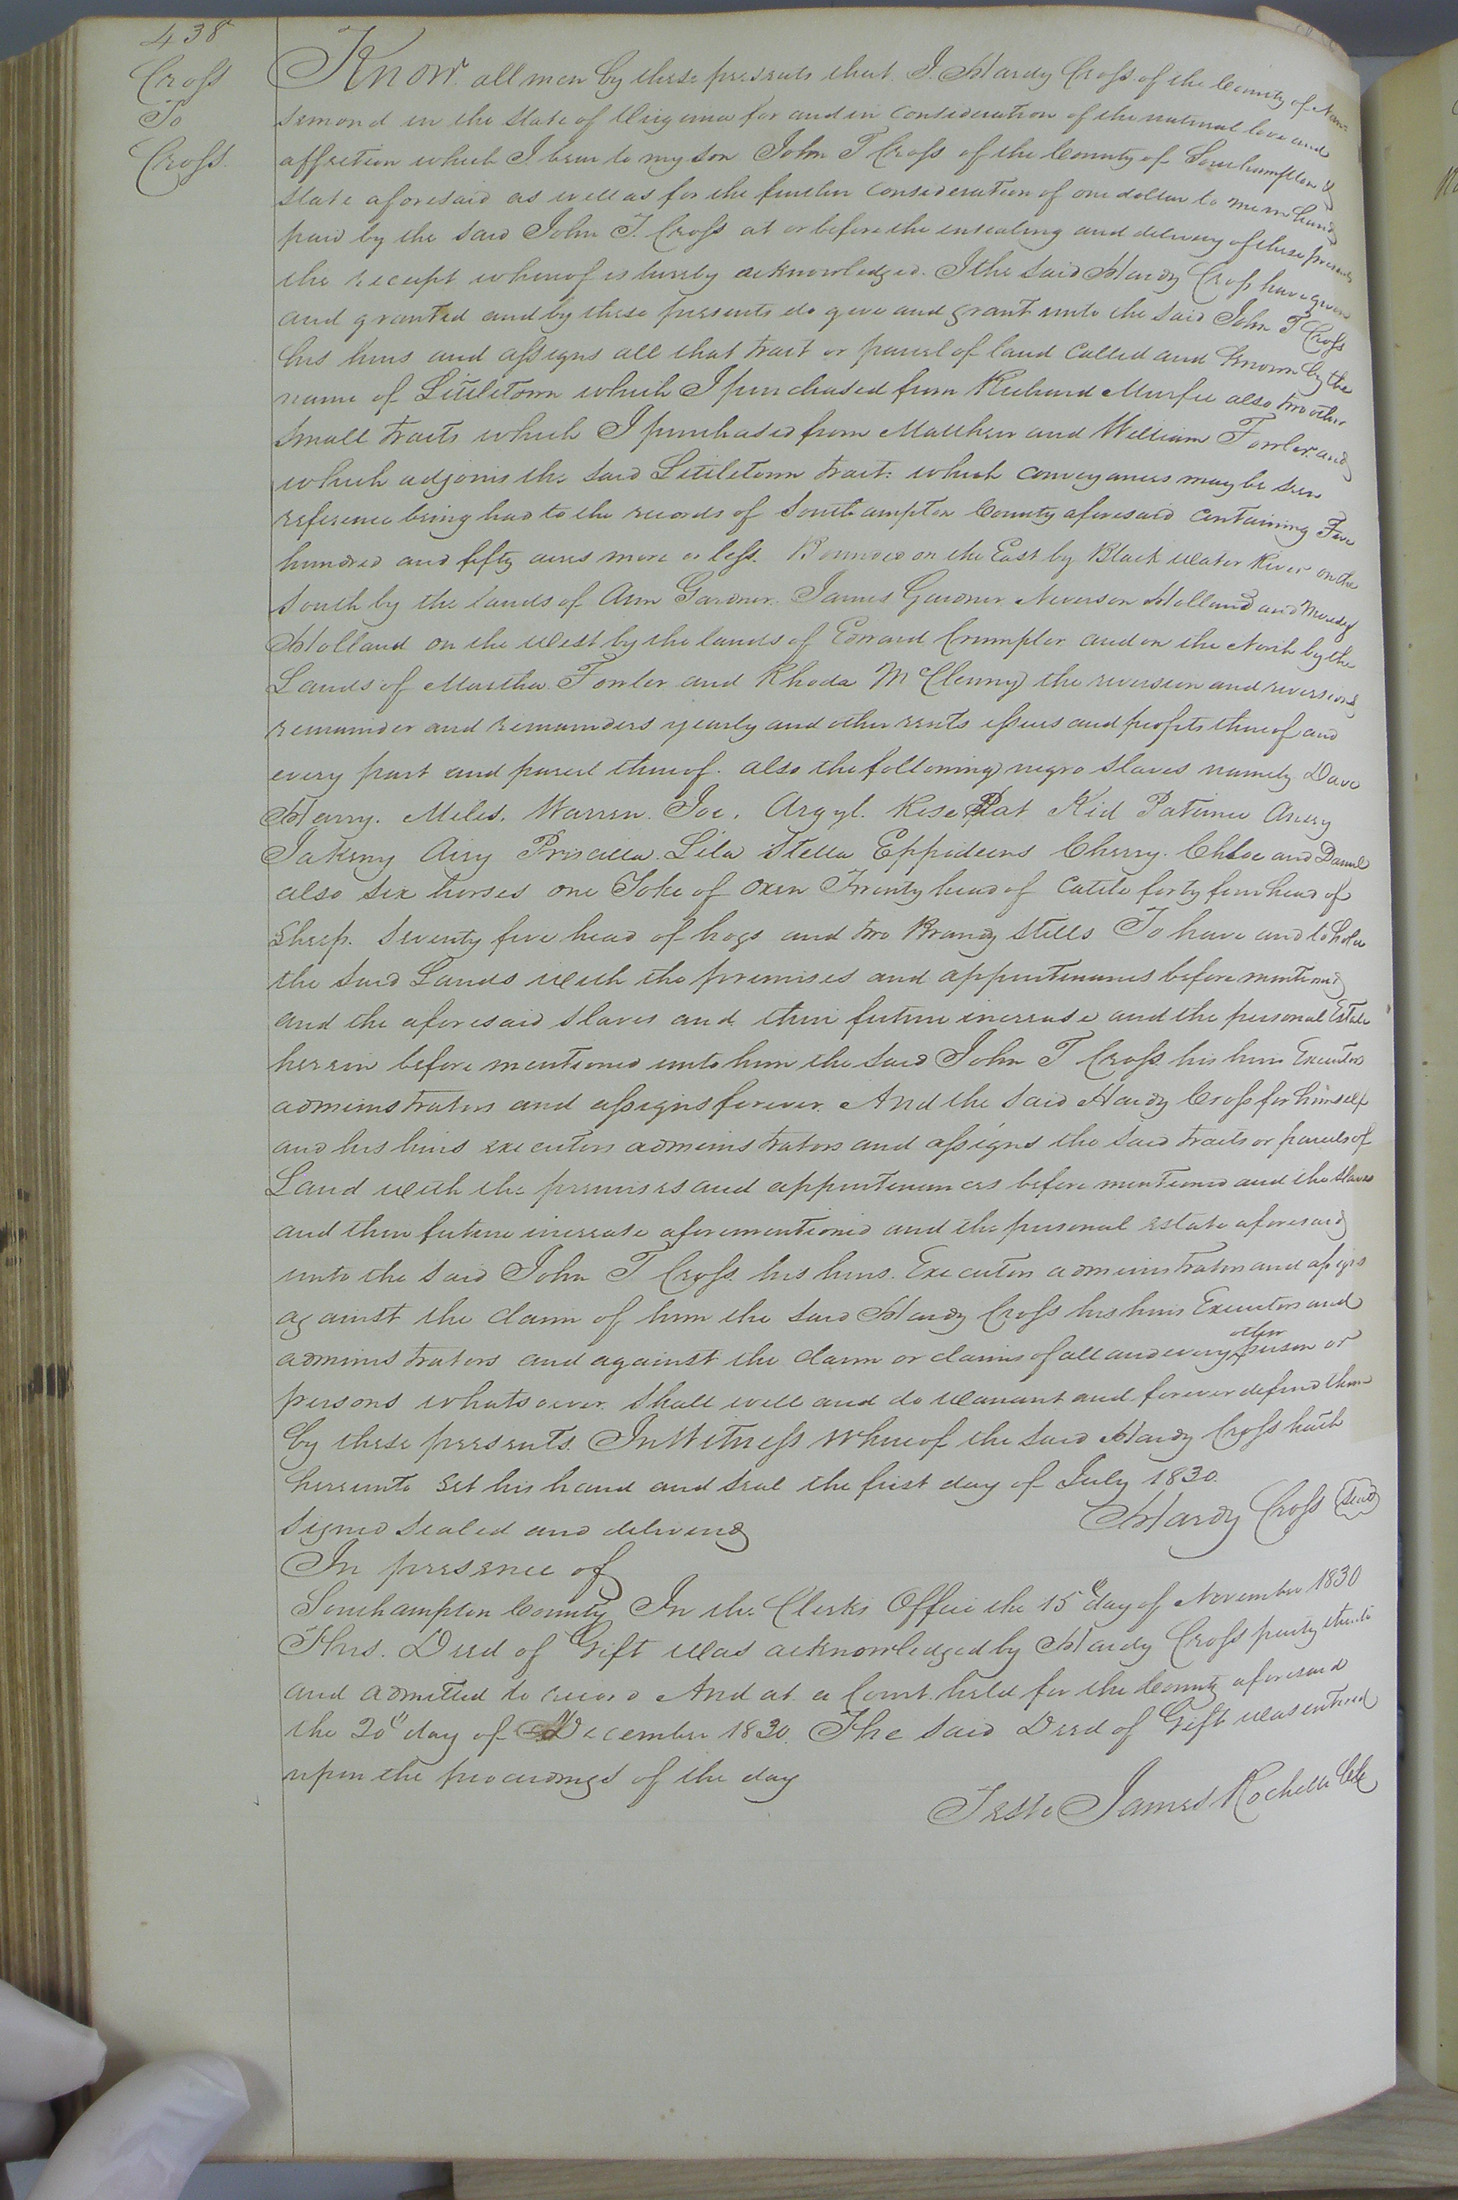 438
Cross
To
Cross.
Know all men by these presents that I. Hardy Cross of the County of Nan=
semond in the State of Virginia for and in Consideration of the natural love and
affection which I bear to my son John T Cross of the County of Southampton &
State aforesaid as well as for the further Consideration of one dollar to me in hand
paid by the said John T. Cross at or before the ensealing and delivery of these presents
the receipt whereof is hereby acknowledged. I the said Hardy Cross have given
and granted and by these presents do give and grant unto the said John T Cross
his heirs and assigns all that tract or parcel of land Called and Known by the
name of Littletown which I purchased from Richard Murfee also two other
Small tracts which I purchased from Matthew and William Fowler and
which adjoins the said Littletown tract: which conveyances may be seen
reference being had to the records of Southampton County aforesaid Containing Five
hundred and fifty acres more or less. Bounded on the East by Black Water River on the
South by the lands of Ann Gardner. James Gardner Neverson Holland and
Holland on the West by the lands of Edward Crumpler and on the North by the
Lands of Martha Fowler and Rhoda McClenny the reversion and reversions
remainder and remainders yearly and other rents issues and profits thereof and
every part and parcel thereof. also the following negro slaves namely Dave
Harry. Miles. Warren. Joe. Argyl. Rose Pat Kid Patience
Airy Priscilla. Lila Stella Cherry. Chloe and Daniel
also six horses one Yoke of Oxen Twenty head of Cattle forty four head of
Sheep. Seventy five head of hogs and two Brandy Stills To have and to hold
the said Lands with the premises and appurtenances before mentioned
and the aforesaid slaves and their future increase and the personal Estate
herein before mentioned unto him the said John T Cross his heirs Executors
administrators and assigns forever. And the said Hardy Cross for himself
and his heirs executors administrators and assigns the said tracts or parcels of
Land with the premises and appurtenances before mentioned and the slaves
and their future increase aforementioned and the personal estate aforesaid
unto the said John T Cross his heirs. Executors administrators and assigns
against the claim of him the said Hardy Cross his heirs Executors and
administrators and against the claim or claims of all and every other person or
persons whatsoever shall well and do warrant and forever defend them
by these presents. In Witness Whereof the said Hardy Cross hath
hereunto set his hand and seal the first day of July 1830.
Signed Sealed and delivered Hardy Cross Seal
In presence of
Southampton County In the Clerks Office the 15th day of November 1830
This. Deed of Gift was acknowledged by Hardy Cross party thereto
and admitted to record And at a Court held for the County aforesaid
the 20th day of December 1830. The said Deed of Gift was entered
upon the proceedings of the day
Teste James Rochelle Clk